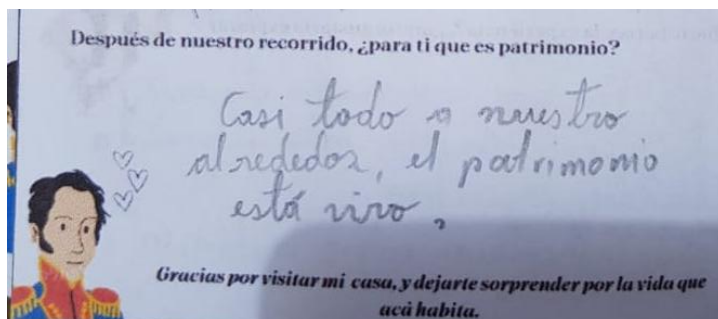 Después de nuestro recorrido, ¿para ti que es patrimonio?
Casi todo a nuestro
alrededor, el patrimonio
está vivo.
Gracias por visitar mi casa, y dejarte sorprender por la vida que
acá habita.